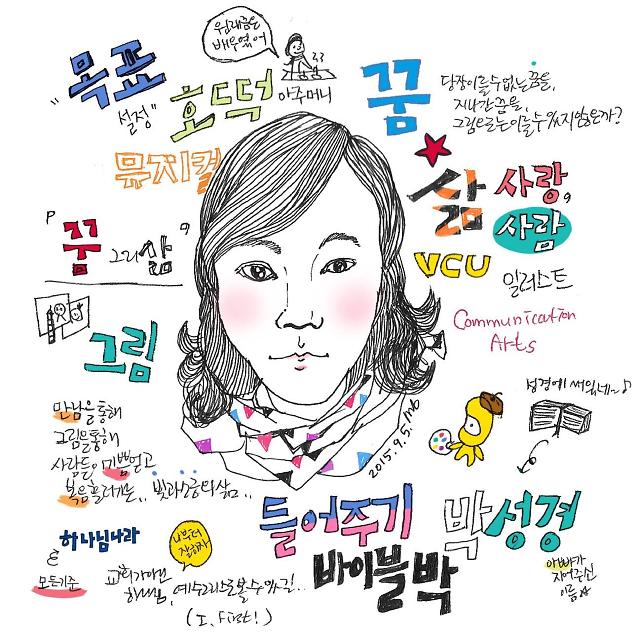 원래꿈은
배우였어
"목표
설정"
호도덕
아주머니
뮤지컬
꿈
당장이룰수없는꿈을,
지나간꿈을,
그림으로는이룰수있지않을까?
삶
사랑,
사람
VCU
일러스트
Communication
Arts
꿈 그리 삶
그림
만남을통해
그림을통해
사람들이기쁨얻고
복음흘러가는.. 빛과소금의삶..
2015.9.5.mb
성경에 써있네~♪
들어주기
박성경
바이블박
아빠가
지어주신
이름
하나님나라
모든기준
나부터
잘하자
교회가아닌
하나님, 예수그리스도볼수있길..
(I, First!)